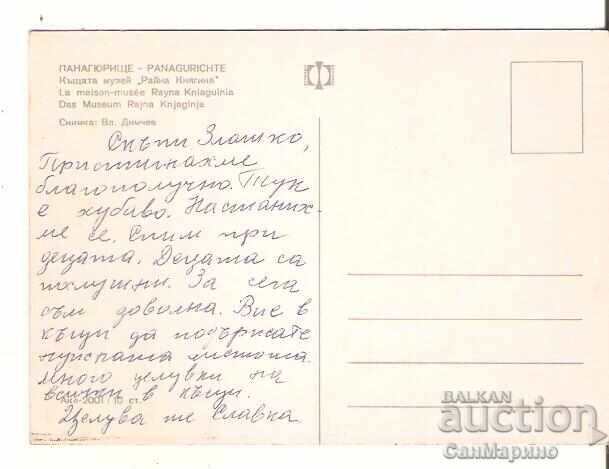 ПАНАГЮРИЩЕ - PANAGURICHTE
Къщата музей „Райна Княгиня"
La maison-musée Rayna Kniaguinia
Das Museum Rajna Knjaginja
Снимка: Вл. Димчев
Скъпи Златко,
Пристигнахме
благополучно. Тук
е хубаво. Настаних-
ме се. Спим при
децата. Децата са
послушни. За сега
съм доволна. Вие в
къщи да подържате
чистота.
много целувки на
всички в къщи.
Акл-2001 10 ст.
Целува те Славка
BALKAN
auction
СанМарино